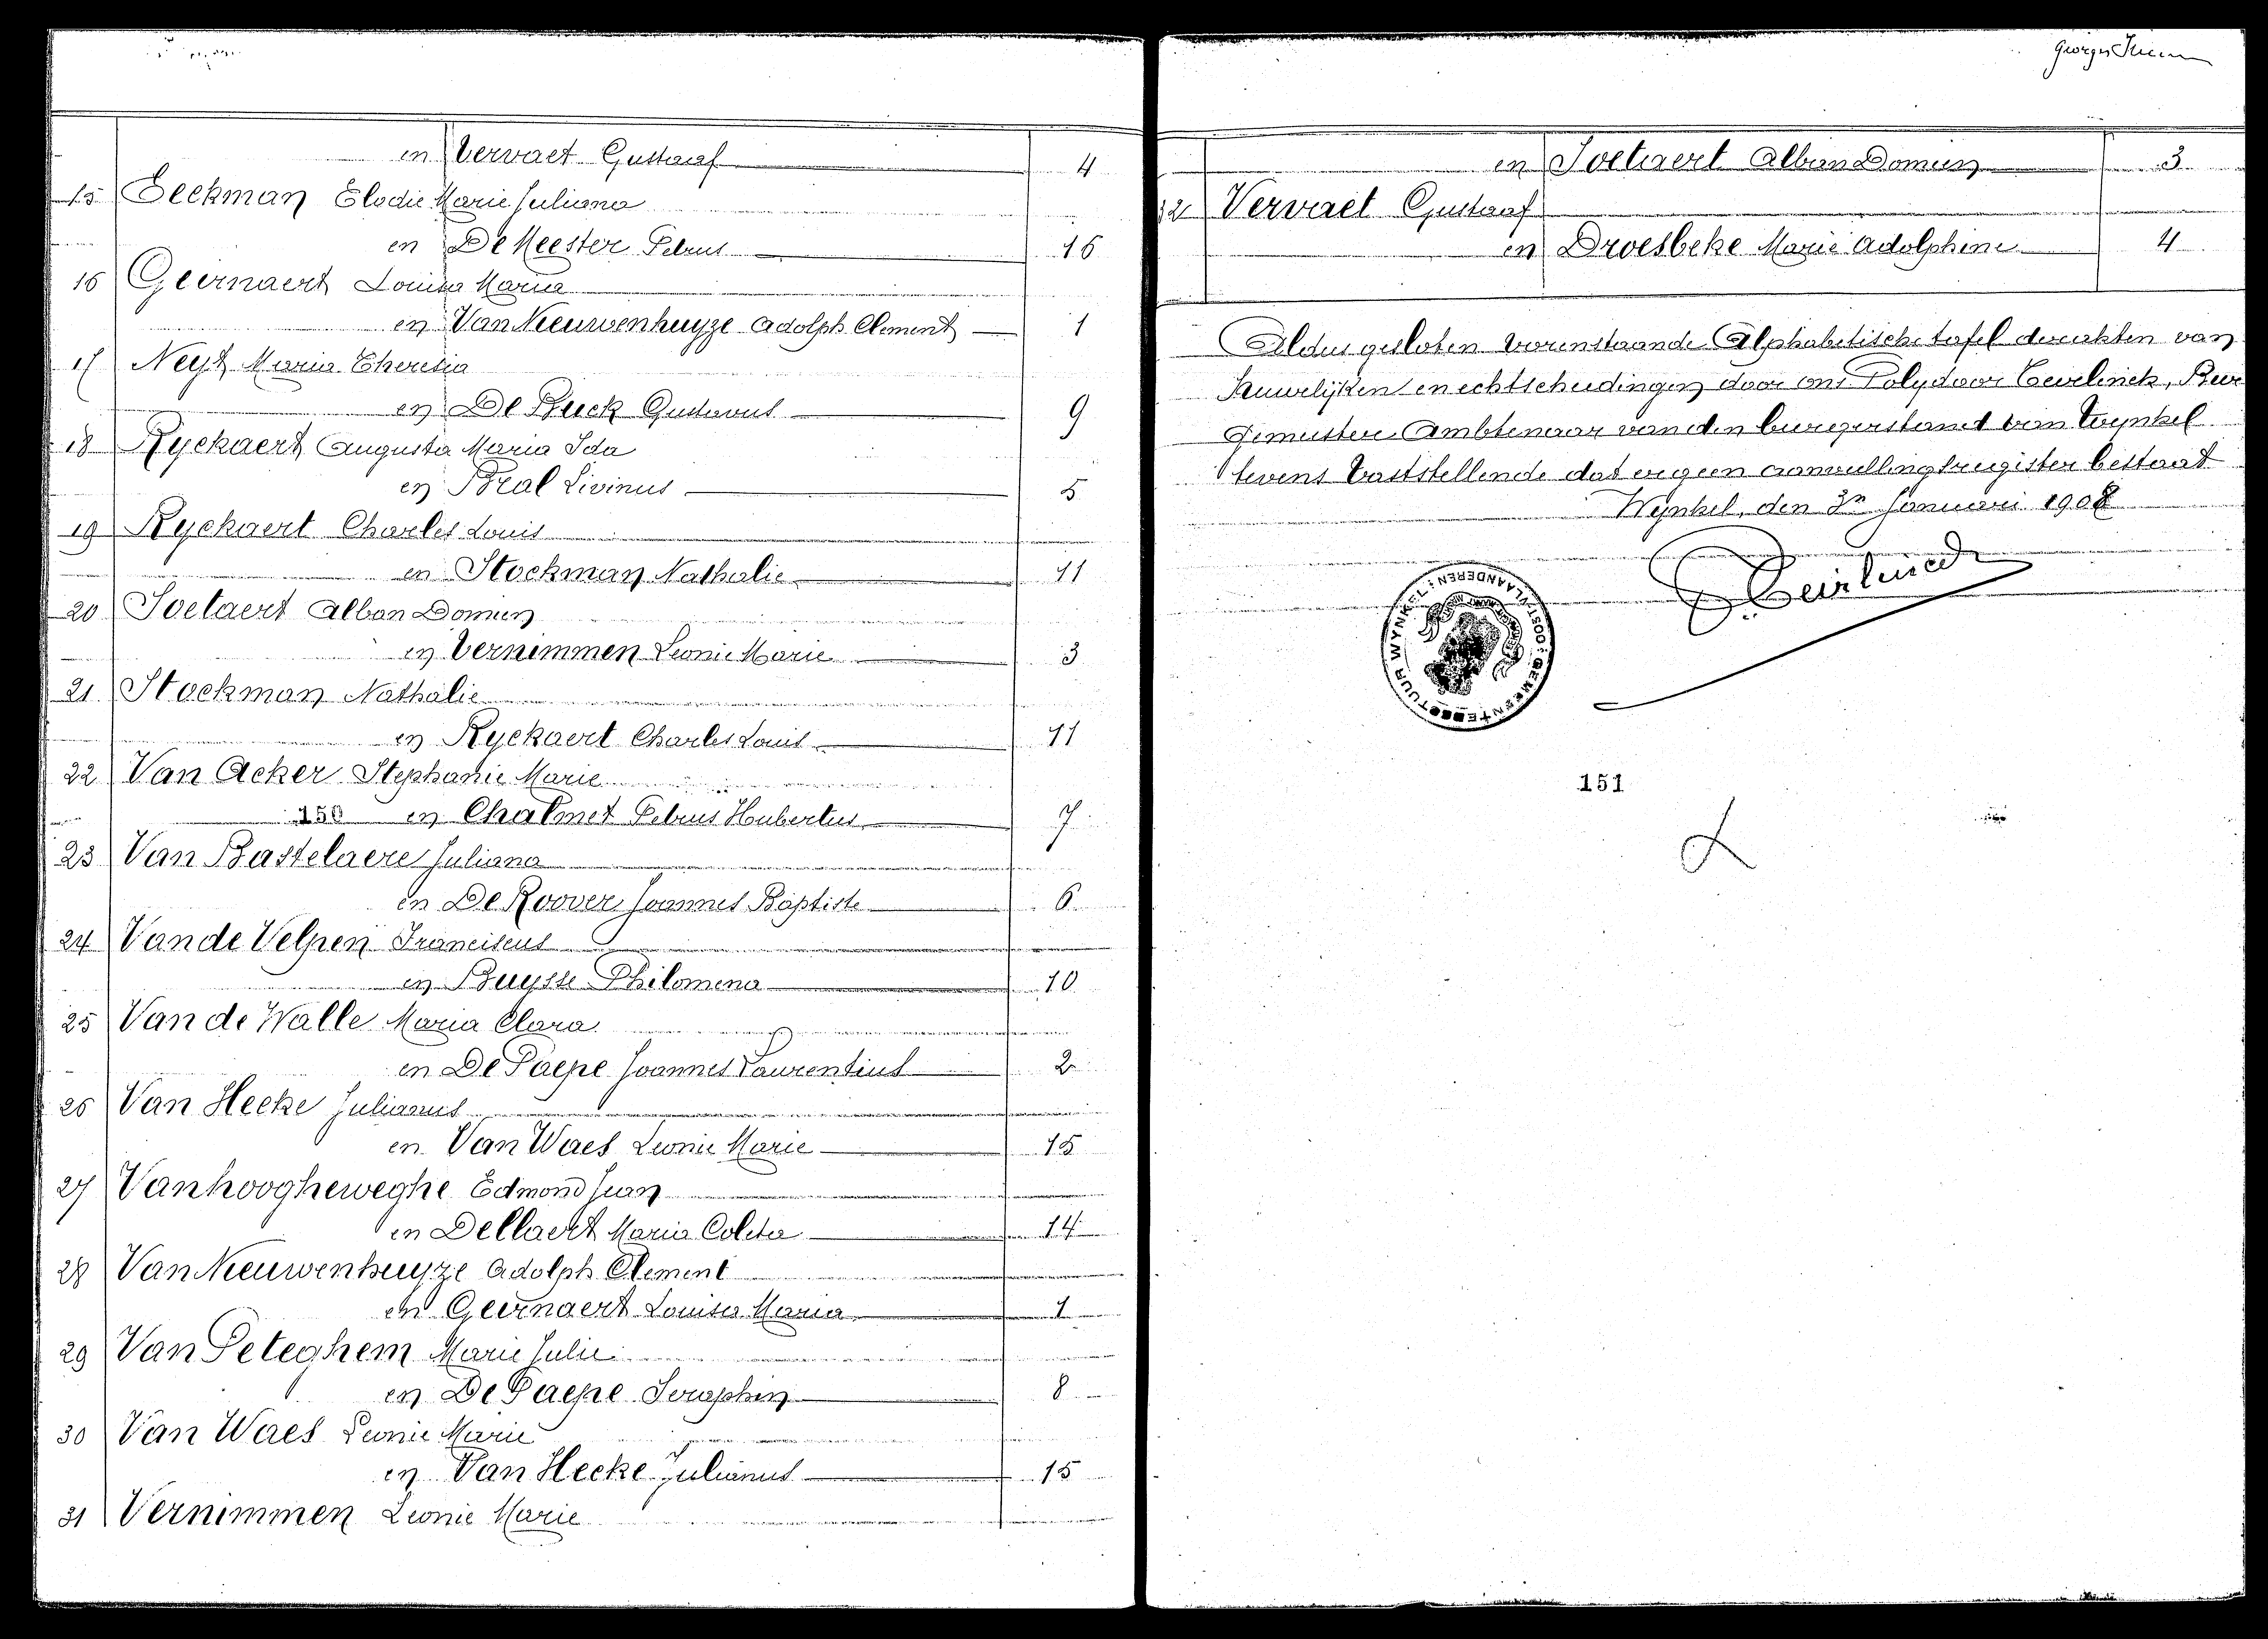 en Vervaet Gustaaf 4
15 Eeckman Elodie Marie Juliana
en De Meester Petrus 16
16 Geernaert Louisa Maria
en Van Nieuwenhuyze Adolph Clement 1
17 Neyt Maria Theresia
en De Buck Gustavus 9
18 Ryckaert Augusta Maria Ida
en Bral Livinus 5
19 Ryckaert Charles Louis
en Stockman Nathalie 11
20 Soetaert Alban Domien
en Vernimmen Leonie Marie 3
21 Stockman Nathalie
en Ryckaert Charles Louis 11
22 Van Acker Stephanie Marie
150 en Chalmet Petrus Hubertus 7
23 Van Bastelaere Juliana
en De Roover Joannes Baptiste 6
24 Van de Velpen Franciscus
en Buysse Philomena 10
25 Van de Walle Maria Clara
en De Paepe Joannes Laurentius 2
26 Van Hecke Julianus
en Van Waes Leonie Marie 15
27 Vanhoogheweghe Edmond Jean
en Dellaert Maria Coleta 14
28 Van Nieuwenhuyze Adolph Clement
en Geernaert Louisa Maria 1
29 Van Peteghem Marie Julie
en De Paepe Seraphin 8
30 Van Waes Leonie Marie
en Van Hecke Julianus 15
31 Vernimmen Leonie Marie
Georges
en Soetaert Alban Domien 3
32 Vervaet Gustaaf
en Droesbeke Marie Adolphine 4
Aldus gesloten vorenstaande Alphabetische tafel der akten van
Huwelijken en echtscheidingen door ons Polydoor Geirlinck, Bur
gemeester Ambtenaar van den burgerstand van Wynkel
tevens vaststellende dat er geen aanvullingsregister bestaat
Wynkel, den 3n Januari 1908
P. Geirlinck
GEMEENTEBESTUUR WYNKEL
OOST-VLAANDEREN
151